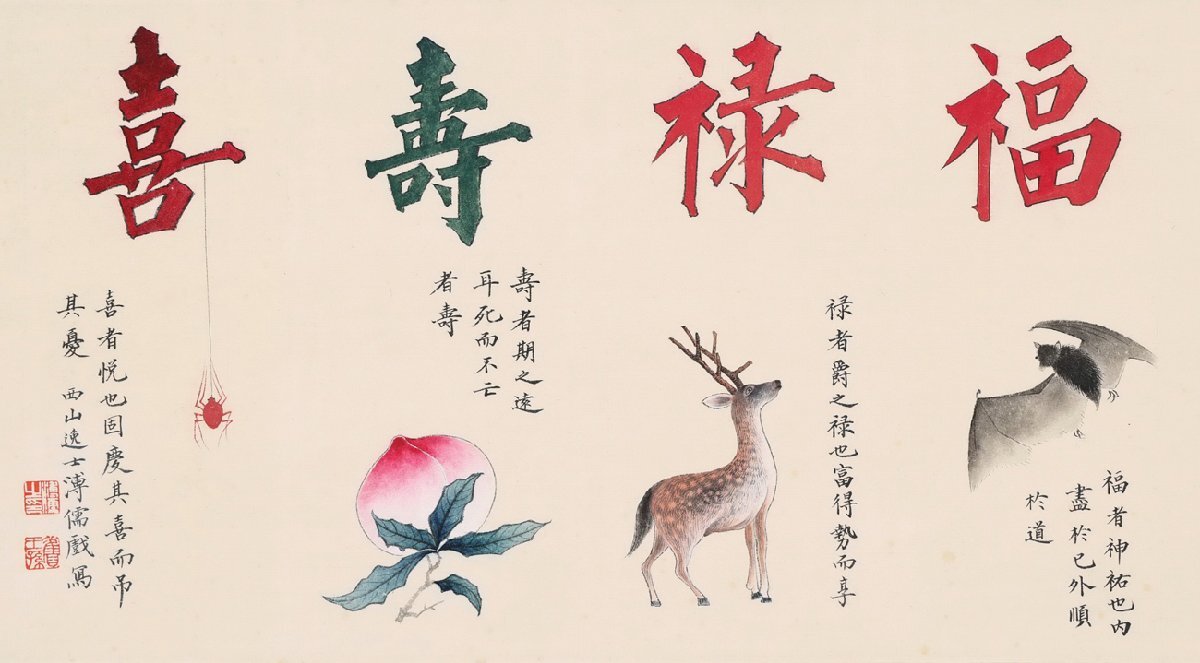 福
福者神祐也内
盡於己外順
於道
禄
禄者爵之禄也富得勢而享
壽
壽者期之遠
耳死而不亡
者壽
喜
喜者悦也固慶其喜而吊
其憂 西山逸士溥儒戲寫
溥儒之印
舊王孫